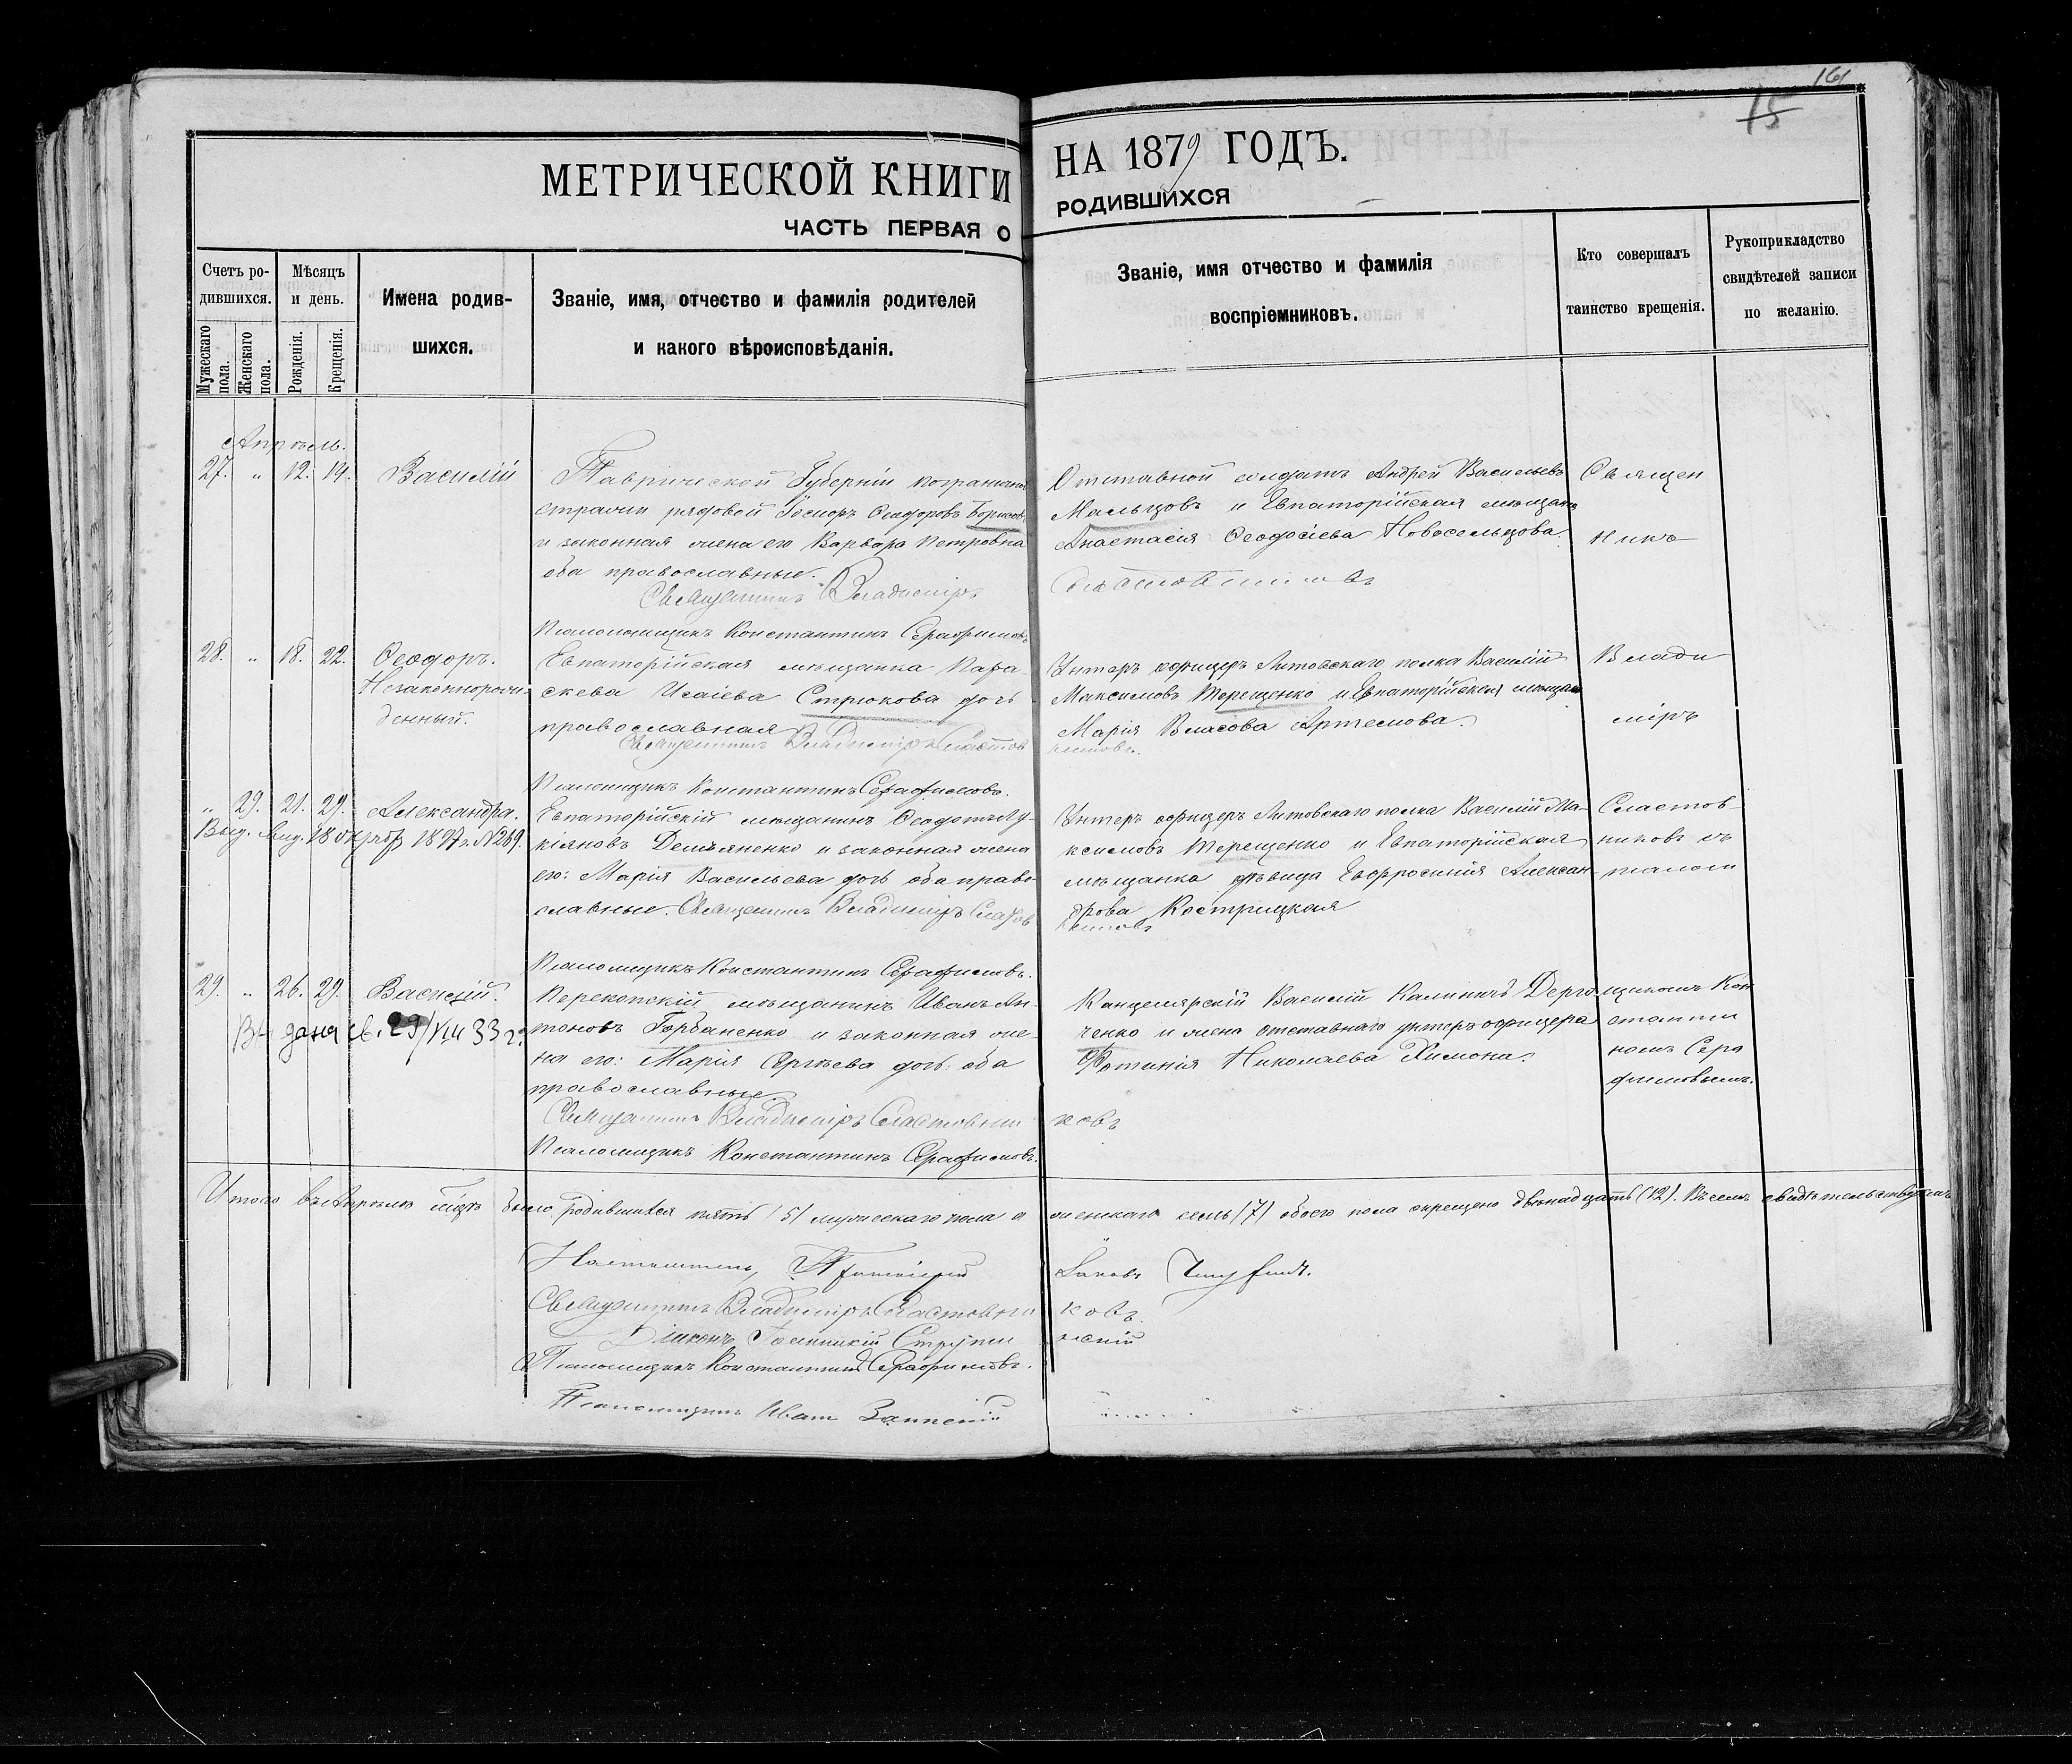 16
15
МЕТРИЧЕСКОЙ КНИГИ
НА 1879 ГОДЪ.
ЧАСТЬ ПЕРВАЯ О
РОДИВШИХСЯ
Счетъ ро-
дившихся.
Мужескаго пола.
Женскаго пола.
Мѣсяцъ
и день.
Рожденія.
Крещенія.
Имена родив-
шихся.
Званіе, имя, отчество и фамилія родителей
и какого вѣроисповѣданія.
Званіе, имя отчество и фамилія
воспріемниковъ.
Кто совершалъ
таинство крещенія.
Рукоприкладство
свидѣтелей записи
по желанію.
Апрѣль.
27. " 12. 19. Василій
Таврической Губерніи пограничной
стражи рядовой Феодоровъ Борисовъ
и законная жена его Варвара Петровна
оба православные.
Священникъ Владиміръ
Псаломщикъ Константинъ Серафимовъ
Отставной солдатъ Андрей Васильевъ
Мальцовъ и Евпаторійская мѣщанка
Анастасія Феодосіева Новосельцова.
Сластовниковъ
Священ
никъ
28. " 18. 22. Феодоръ.
Незаконнорож-
денный.
Евпаторійская мѣщанка Пара-
скева Исаіева Стрюкова дочь
православная
Священникъ Владиміръ Сластов
Псаломщикъ Константинъ Серафимовъ.
Унтеръ офицеръ Литовскаго полка Василій
Максимовъ Терещенко и Евпаторійская мѣщан
Марія Власова Артемова.
никовъ.
Влади
міръ
" 29. 21. 29. Александра.
Выд. 18 1897 г. №269.
Евпаторійскій мѣщанинъ Феодотъ Лу-
кіяновъ Демьяненко и законная жена
его: Марія Васильева дочь оба право-
славные. Священникъ Владиміръ Сластов
Псаломщикъ Константинъ Серафимовъ.
Унтеръ офицеръ Литовскаго полка Василій Ма-
ксимовъ Терещенко и Евпаторійская
мѣщанка дѣвица Евфросинія Алексан-
дрова Кострицкая
никовъ
Сластов-
никовъ съ
псалом
29. " 26. 29. Василій.
Выдана св. 29/VIII 33 г.
Перекопскій мѣщанинъ Иванъ Ан-
тоновъ Горбаненко и законная же-
на его: Марія Сергѣева дочь: оба
православные.
Священникъ Владиміръ Сластовни
Псаломщикъ Константинъ Серафимовъ.
Канцелярскій Василій Калиничъ Дерго
ченко и жена отставнаго унтеръ офицера
Фотинія Николаева Химона.
ковъ
щикомъ Кон
стантин
номъ Сера
фимовымъ.
Итого въ Апрѣлѣ м-цѣ было родившихся пять (5) мужескаго пола а женскаго семь (7) обоего пола окрещено двѣнадцать (12). Въ семъ свидѣтельствуютъ
Настоятель, Протоіерей Іаковъ
Священникъ Владиміръ Сластовни ковъ.
Діаконъ
Псаломщикъ Константинъ Серафимовъ.
Псаломщикъ Иванъ